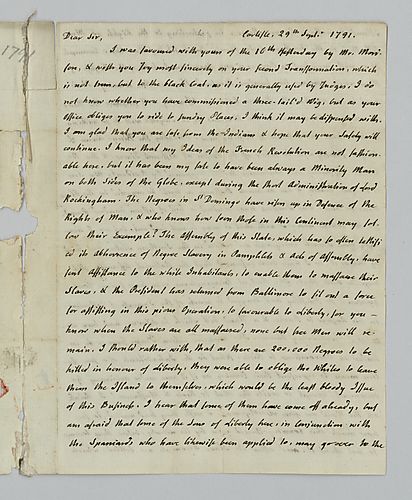 1791
Dear Sir, Carlisle, 29th Septr. 1791.
I was favoured with yours of the 16th Yesterday by Mr. Morri-
son, & wish you Joy most sincerely on your second Transformation, which
is not from, but to the black Coat, as it is generally used by Judges. I do
not know whether you have commissioned a three-tail'd Wig, but as your
office obliges you to ride to sundry Places, I think it may be dispensed with.
I am glad that you are safe from the Indians & hope that your Safety will
continue. I know that my Ideas of the French Revolution are not fashion-
able here, but it has been my fate to have been always a Minority Man
on both Sides of the Globe, except during the short Administration of Lord
Rockingham. The Negroes in St. Domingo have risen up in Defence of the
Rights of Man, & who knows how soon those in this Continent may fol-
low their Example? The Assembly of this State, which has so often testifi-
ed its abhorrence of Negroe Slavery in Pamphlets & Acts of Assembly, have
sent Assistance to the white Inhabitants, to enable them to massacre their
Slaves, & the President has returned from Baltimore to fit out a force
for assisting in this pious Operation, so favourable to Liberty, for you
know when the Slaves are all massacred, none but free Men will re-
main. I should rather wish, that as there are 200,000 Negroes to be
killed in honour of Liberty, they were able to oblige the Whites to leave
them the Island to themselves, which would be the least bloody Issue
of this Business. I hear that some of them have come off already, but
am afraid that some of the Sons of Liberty here, in conjunction with
the Spaniards, who have likewise been applied to, may go over to the